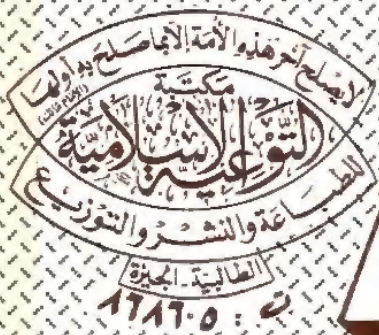 لا يصلح آخر هذه الأمة إلا بما صلح به أولها
(الإمام مالك)
مكتبة
التوعية الإسلامية
للطباعة والنشر والتوزيع
الطالبية - الجيزة
ت : ٨٦٨٦٠٥